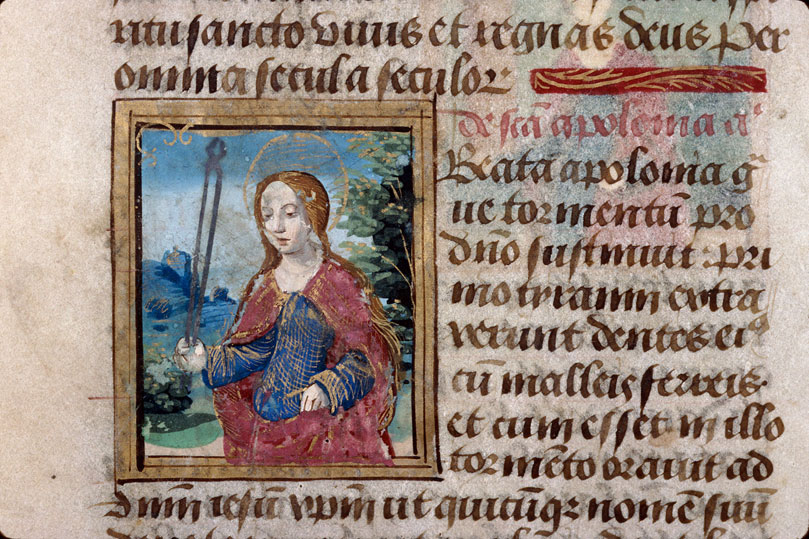 ritu sancto vivis et regnas deus Per
omnia secula seculoꝝ
de scā apolonia aˀ
Beata apolonia gͣ
ue tormentū pro
dn̄o sustinuit. pri
mo tyranni extra
xerunt dentes eiꝰ
cū malleis ferreis.
et cum esset in illo
tormēto orauit ad
dn̄m iesū xpm̄ ut quicūqꝫ nomē suū